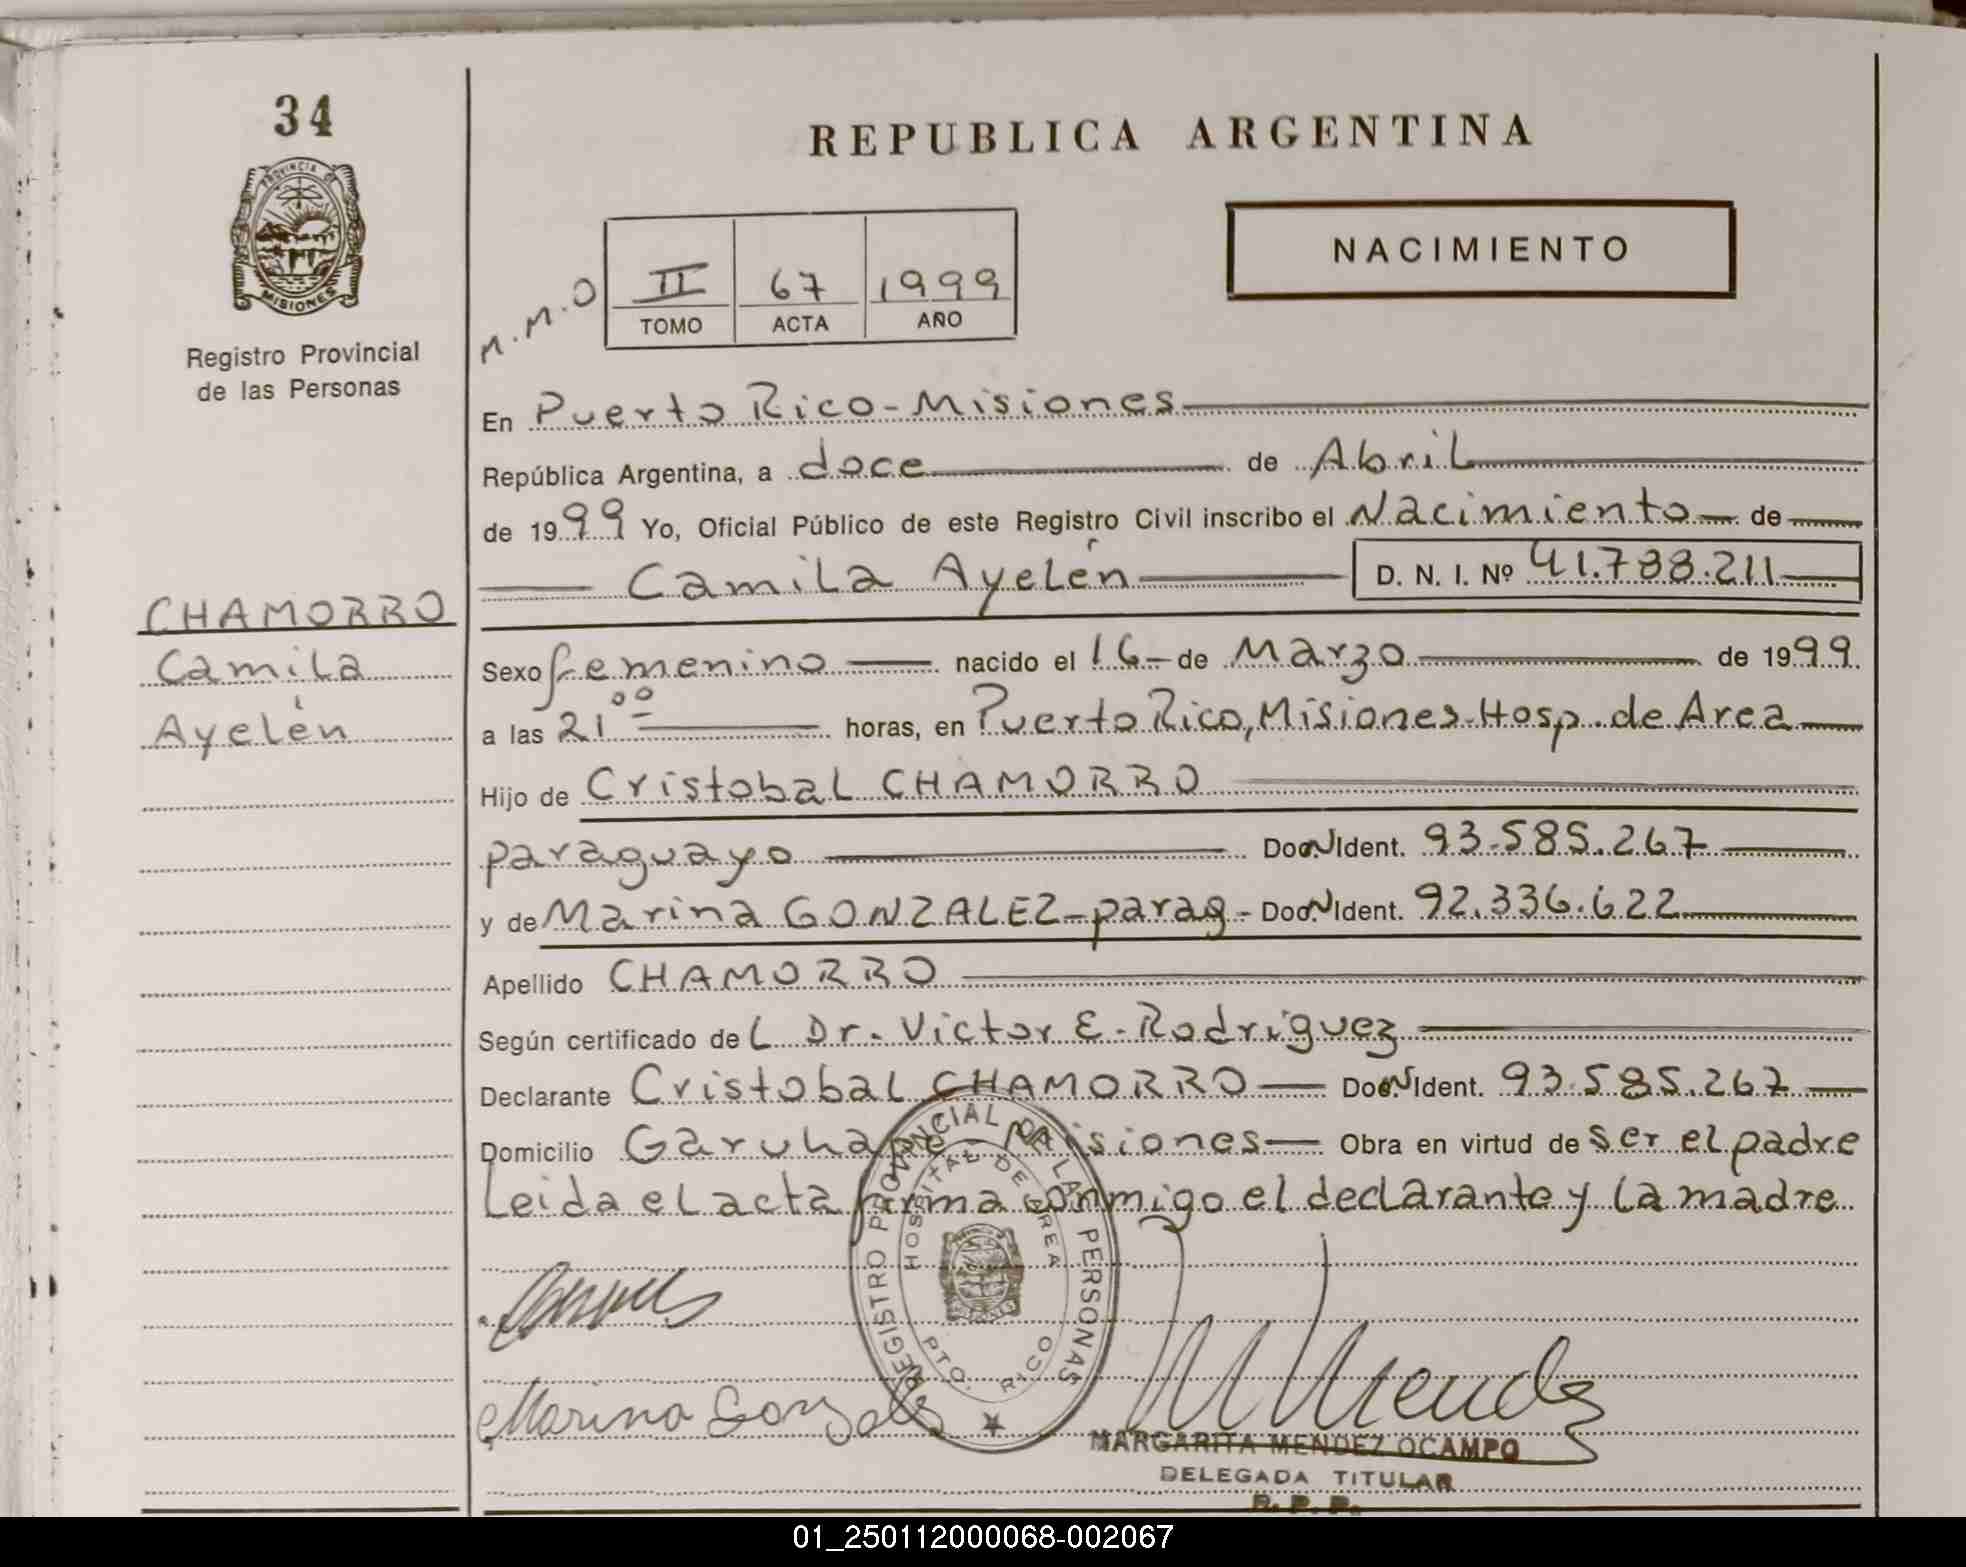 34
PROVINCIA DE
MISIONES
Registro Provincial
de las Personas
CHAMORRO
Camila
Ayelén
REPUBLICA ARGENTINA
M.M.O
II 67 1999
TOMO ACTA AÑO
NACIMIENTO
En Puerto Rico - Misiones
República Argentina, a doce de Abril
de 1999 Yo, Oficial Público de este Registro Civil inscribo el Nacimiento de
Camila Ayelén D. N. I. Nº 41.788.211
Sexo femenino nacido el 16 de Marzo de 1999.
a las 21 00 horas, en Puerto Rico, Misiones-Hosp. de Area
Hijo de Cristobal CHAMORRO
paraguayo Doc. N Ident. 93.585.267
y de Marina GONZALEZ - parag - Doc. N Ident. 92.336.622
Apellido CHAMORRO
Según certificado del Dr. Victor E. Rodriguez
Declarante Cristobal CHAMORRO Doc. N Ident. 93.585.267
Domicilio Garuhape - Misiones Obra en virtud de ser el padre
Leida el acta firma conmigo el declarante y la madre
REGISTRO PROVINCIAL DE LAS PERSONAS
HOSPITAL DE AREA
PTO. RICO
Marina Gonzalez
M Mendez
MARGARITA MENDEZ OCAMPO
DELEGADA TITULAR
R. P. P.
01_250112000068-002067